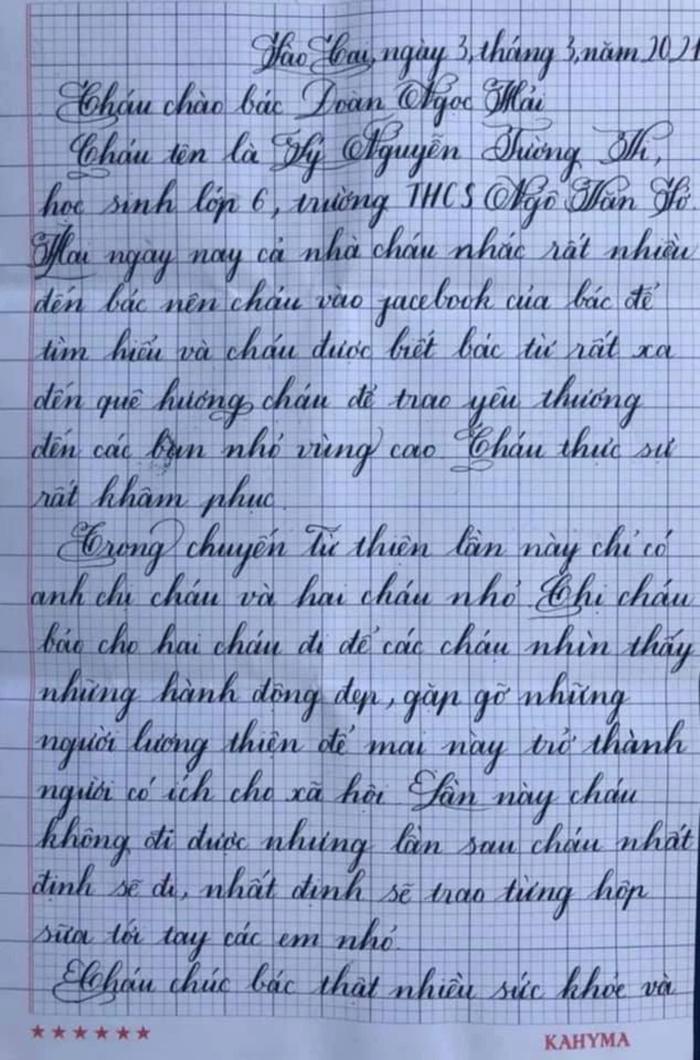 Lào Cai, ngày 3, tháng 3, năm 2021
Cháu chào bác Đoàn Ngọc Hải
Cháu tên là Lý Nguyễn Tường Vi,
học sinh lớp 6, trường THCS Ngô Văn Sở.
Mai ngày nay cả nhà cháu nhắc rất nhiều
đến bác nên cháu vào facebook của bác để
tìm hiểu và cháu được biết bác từ rất xa
đến quê hương cháu để trao yêu thương
đến các bạn nhỏ vùng cao. Cháu thực sự
rất khâm phục.
Trong chuyến từ thiện lần này chỉ có
anh chị cháu và hai cháu nhỏ. Chị cháu
bảo cho hai cháu đi để các cháu nhìn thấy
những hành động đẹp, gặp gỡ những
người lương thiện để mai này trở thành
người có ích cho xã hội. Lần này cháu
không đi được nhưng lần sau cháu nhất
định sẽ đi, nhất định sẽ trao từng hộp
sữa tới tay các em nhỏ.
Cháu chúc bác thật nhiều sức khỏe và
KAHYMA